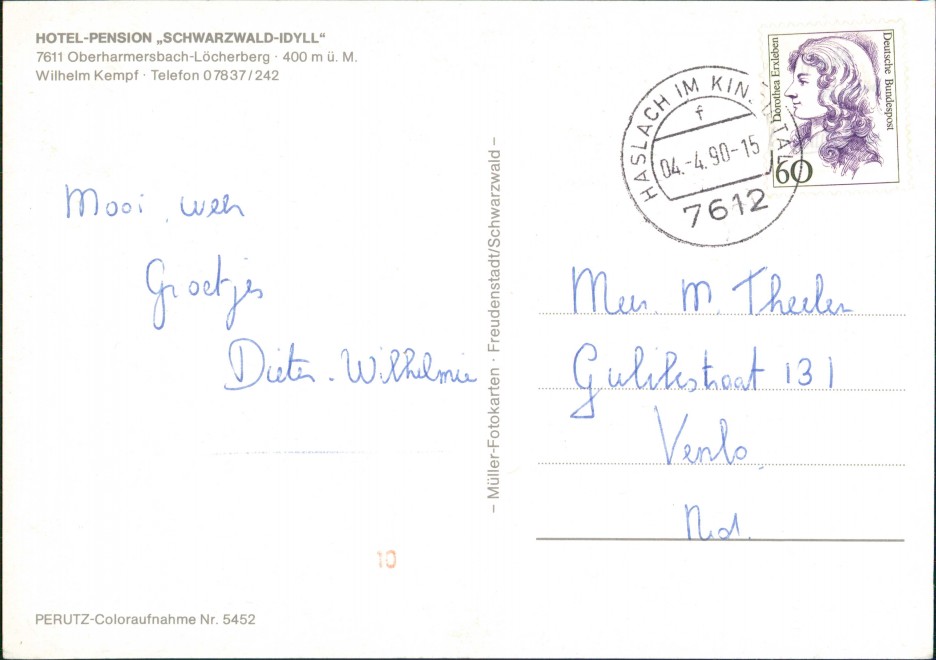 HOTEL-PENSION „SCHWARZWALD-IDYLL“
7611 Oberharmersbach-Löcherberg · 400 m ü. M.
Wilhelm Kempf · Telefon 07837/242
Mooi weer
Groetjes
Dieter. Wilhelmie
PERUTZ-Coloraufnahme Nr. 5452
– Müller-Fotokarten · Freudenstadt/Schwarzwald –
HASLACH IM KINZIGTAL
f
04.-4.90-15
7612
Dorothea Erxleben
Deutsche Bundespost
60
Mevr. M. Theelen
Gulikstraat 131
Venlo
Ned.
10